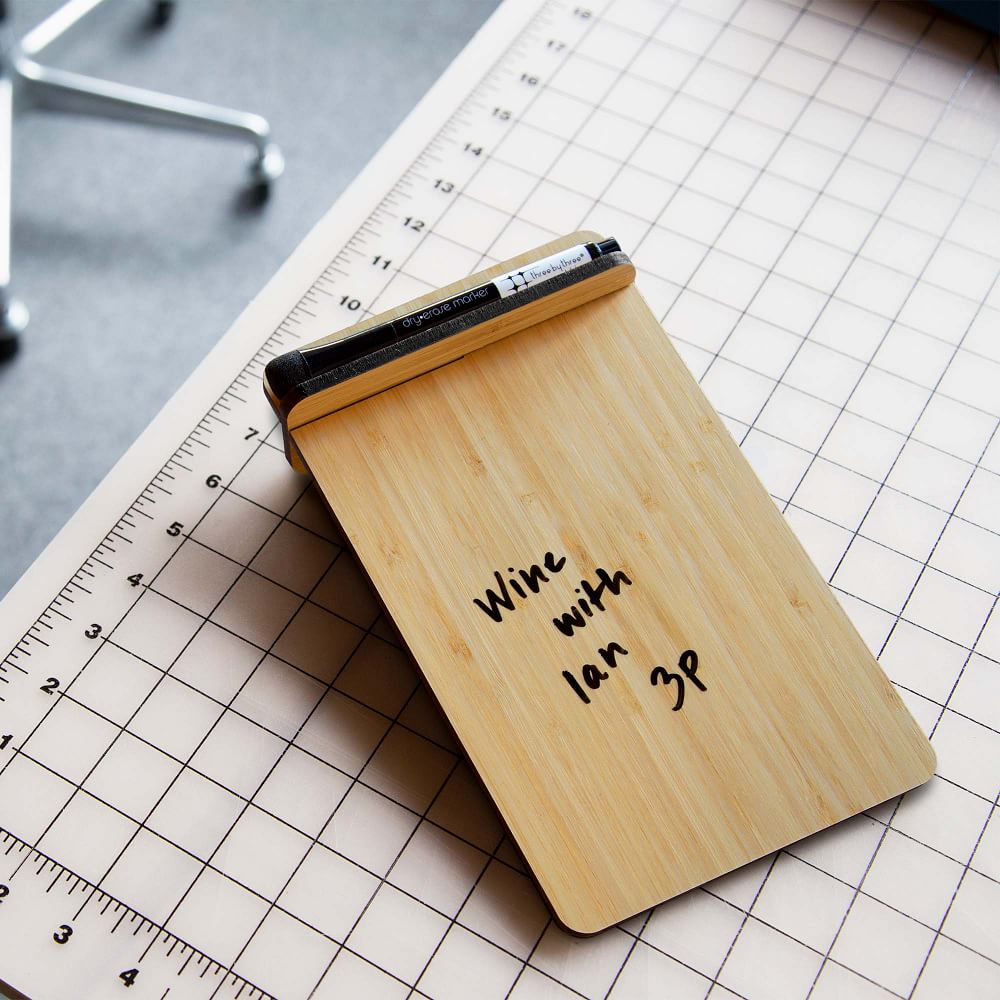 18
17
16
15
14
13
12
11
10
7
6
5
4
3
2
1
2
3
4
dry•erase marker
three by three®
Wine
with
Ian 3p